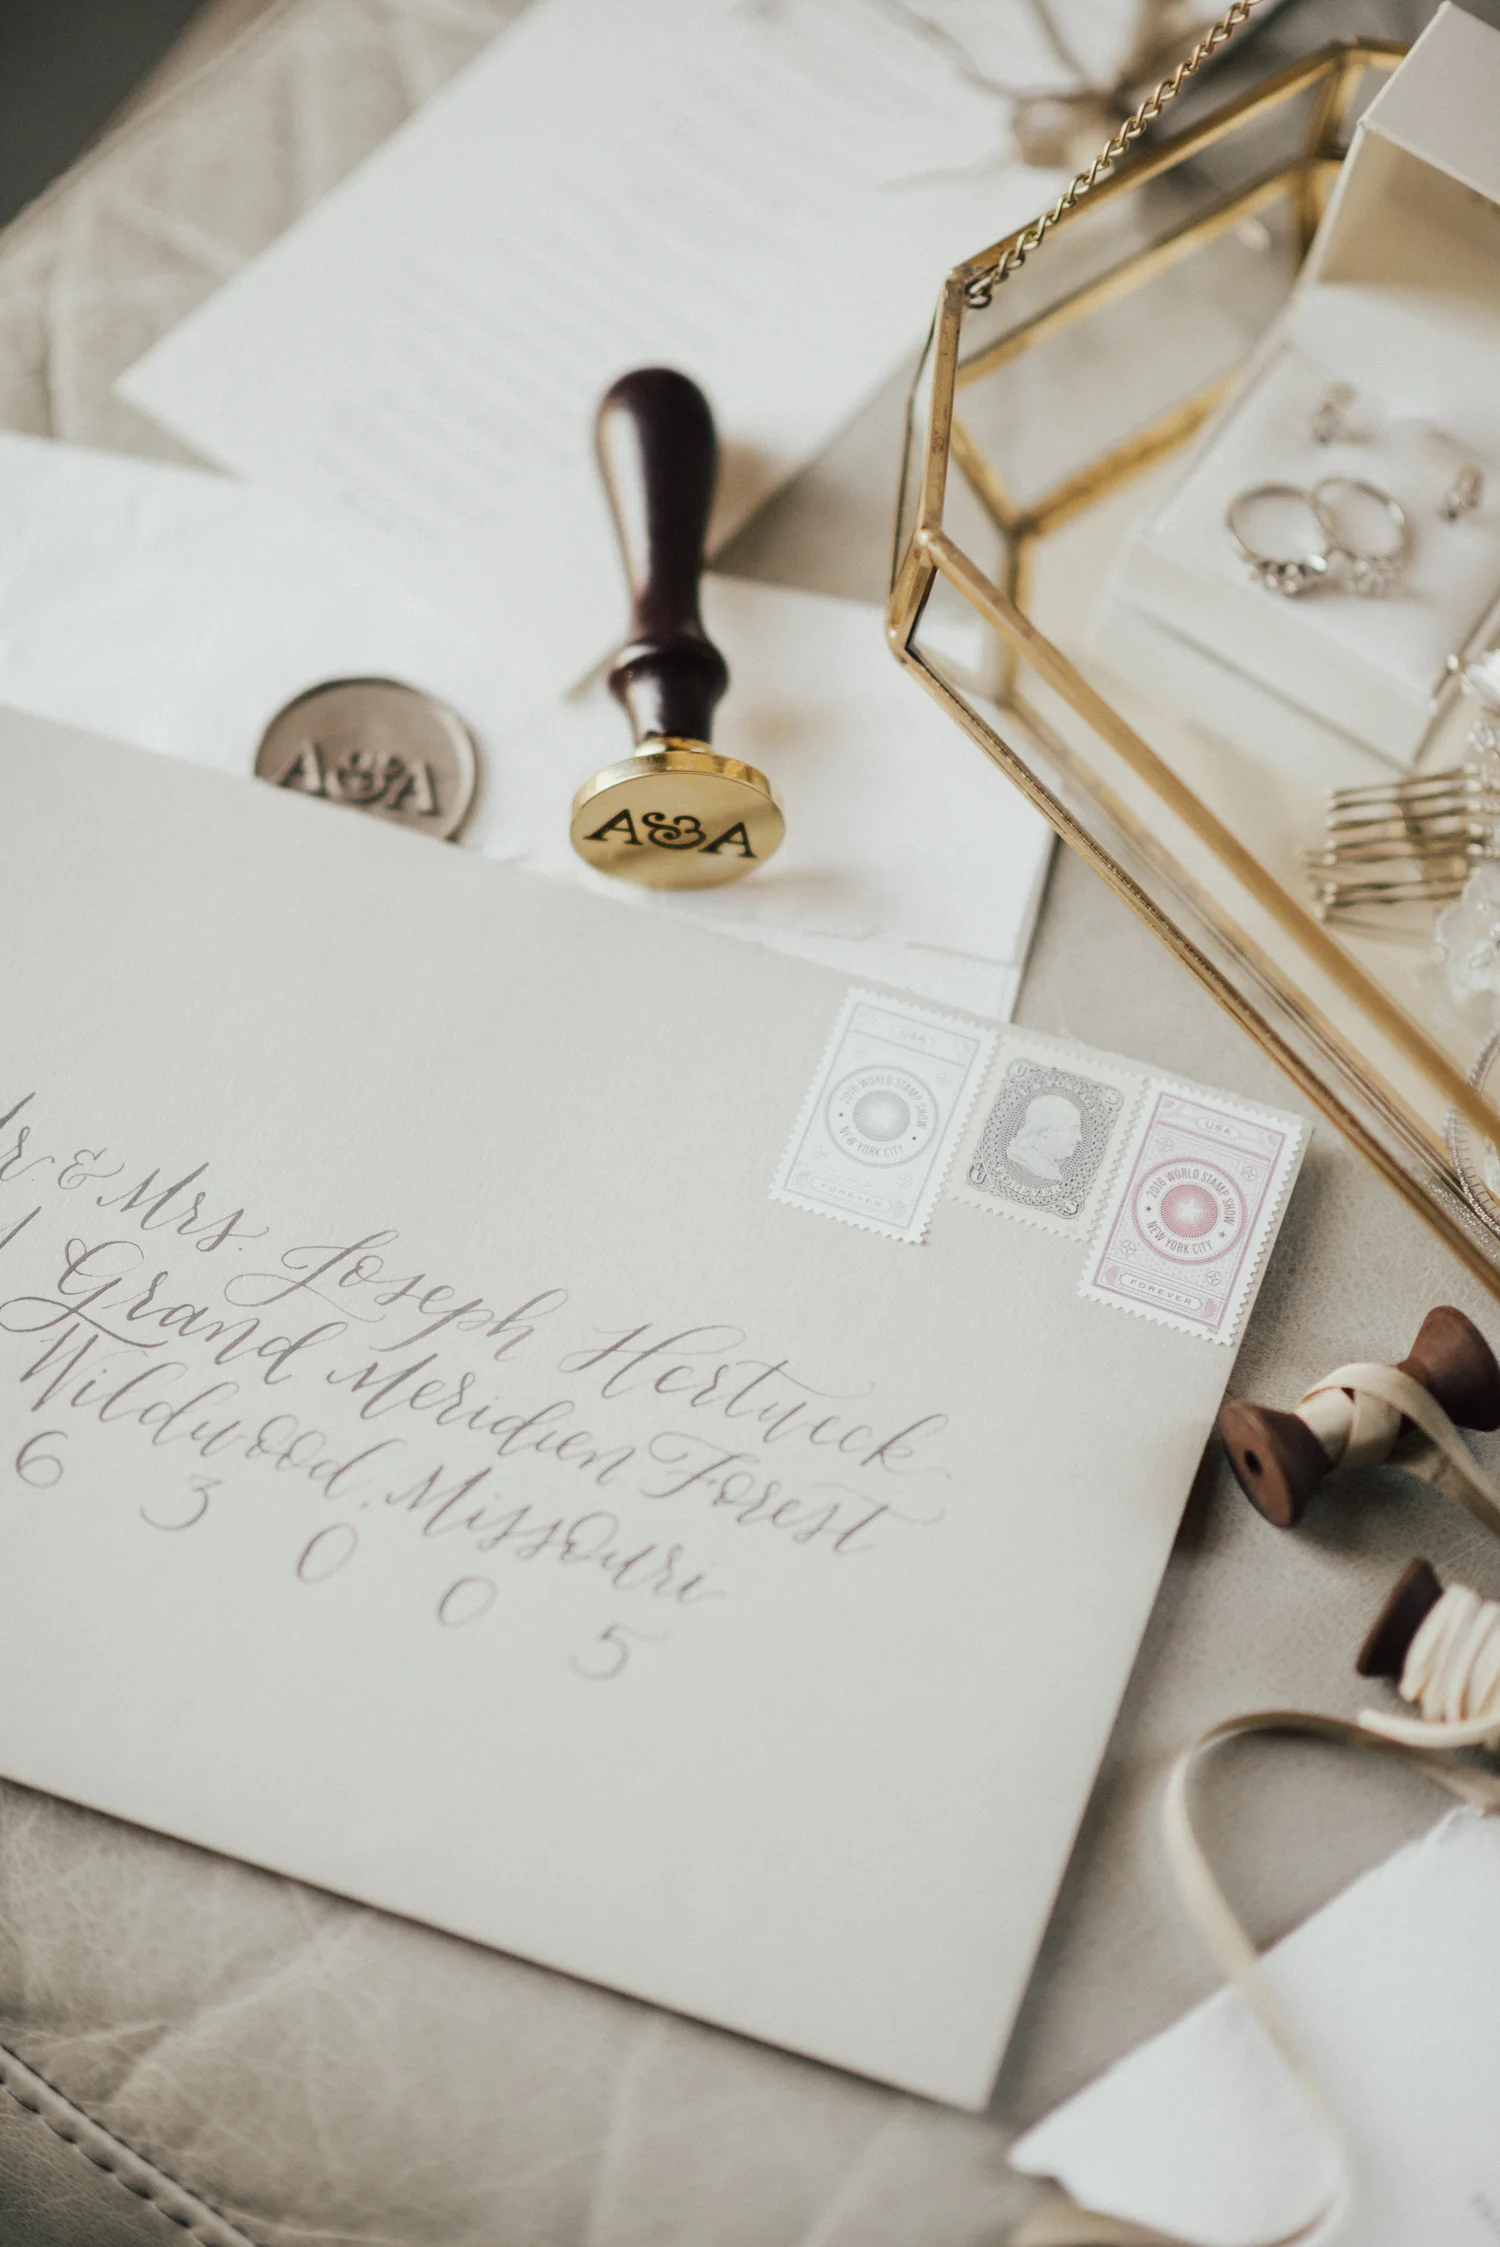 A&A
A&A
USA
2016 WORLD STAMP SHOW
NEW YORK CITY
FOREVER
FOREVER
USA
2016 WORLD STAMP SHOW
NEW YORK CITY
FOREVER
& Mrs. Joseph Hertweck
Grand Meridien Forest
Wildwood, Missouri
6 3 0 0 5